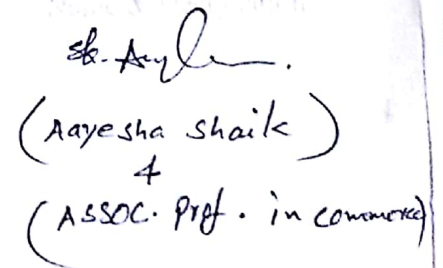 (Aayesha Shaik)
4
(Assoc. Prof. in commerce)